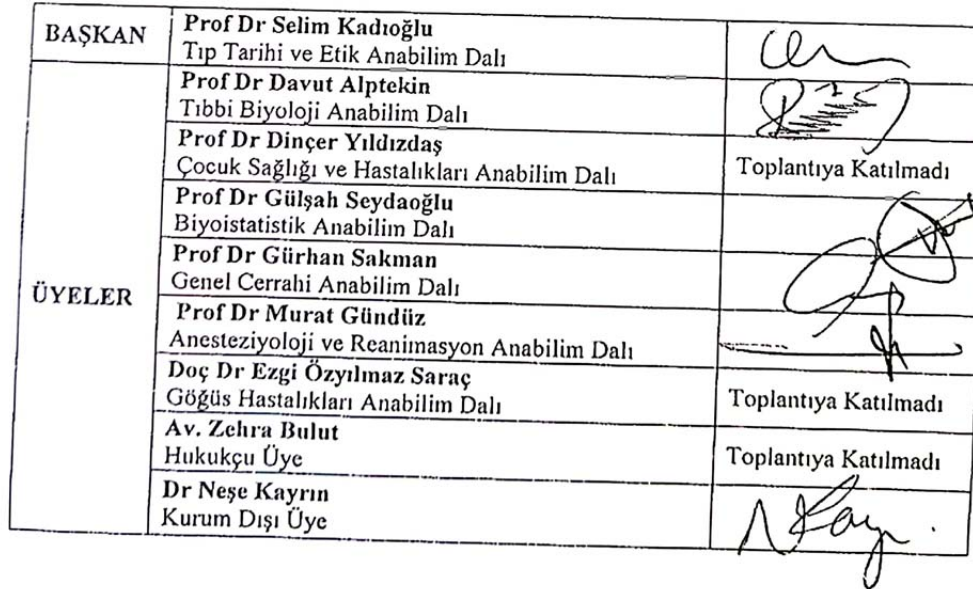 BAŞKAN
Prof Dr Selim Kadıoğlu
Tıp Tarihi ve Etik Anabilim Dalı
ÜYELER
Prof Dr Davut Alptekin
Tıbbi Biyoloji Anabilim Dalı
Prof Dr Dinçer Yıldızdaş
Çocuk Sağlığı ve Hastalıkları Anabilim Dalı
Toplantıya Katılmadı
Prof Dr Gülşah Seydaoğlu
Biyoistatistik Anabilim Dalı
Prof Dr Gürhan Sakman
Genel Cerrahi Anabilim Dalı
Prof Dr Murat Gündüz
Anesteziyoloji ve Reanimasyon Anabilim Dalı
Doç Dr Ezgi Özyılmaz Saraç
Göğüs Hastalıkları Anabilim Dalı
Toplantıya Katılmadı
Av. Zehra Bulut
Hukukçu Üye
Toplantıya Katılmadı
Dr Neşe Kayrın
Kurum Dışı Üye